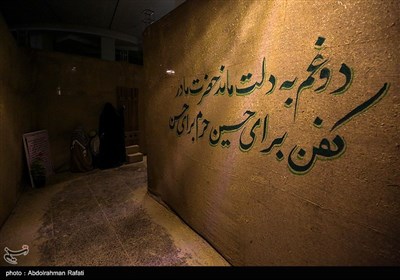 دو غم به دلت ماند حضرت مادر
کفن برای حسین حرم برای حسن
photo : Abdolrahman Rafati